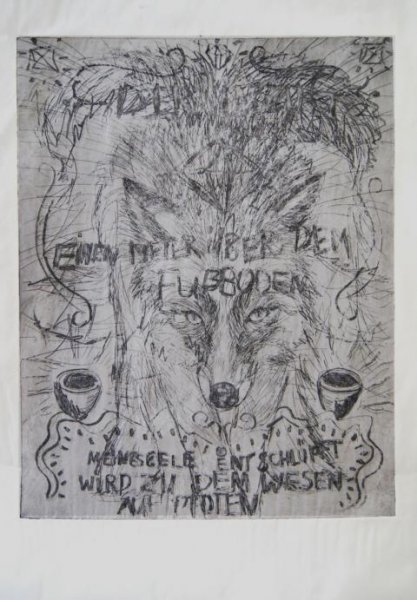 EINEN METER ÜBER DEM
FUßBODEN
SEELE ENTSCHLÜPFT
WIRD ZU DEM WESEN
AUF PFOTEN